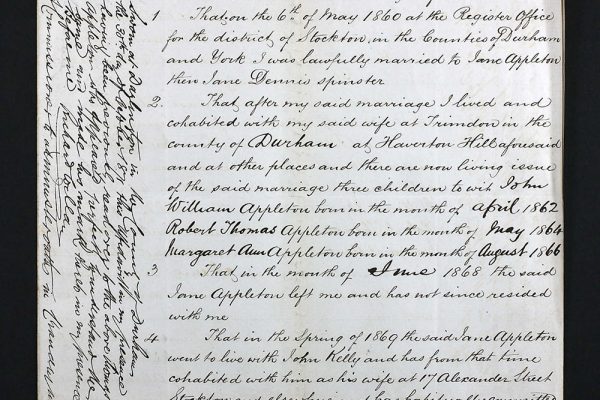 1 That on the 6th of May 1860 at the Register Office
for the district of Stockton in the Counties of Durham
and York I was lawfully married to Jane Appleton
then Jane Dennis spinster
2. That after my said marriage I lived and
cohabited with my said wife at Trimdon in the
county of Durham at Haverton Hill aforesaid
and at other places and there are now living issue
of the said marriage three children to wit John
William Appleton born in the month of April 1862
Robert Thomas Appleton born in the month of May 1864
Margaret Ann Appleton born in the month of August 1866
3 That in the month of June 1868 the said
Jane Appleton left me and has not since resided
with me
4 That in the Spring of 1869 the said Jane Appleton
went to live with John Kelly and has from that time
cohabited with him as his wife at 17 Alexander Street
Stockton
Sworn at Darlington in the County of Durham
having been previously read over to the above Thomas
Appleton who appeared perfectly to understand the
same and made his mark thereto in my presence
Before me
A Commissioner to administer oaths in Chancery